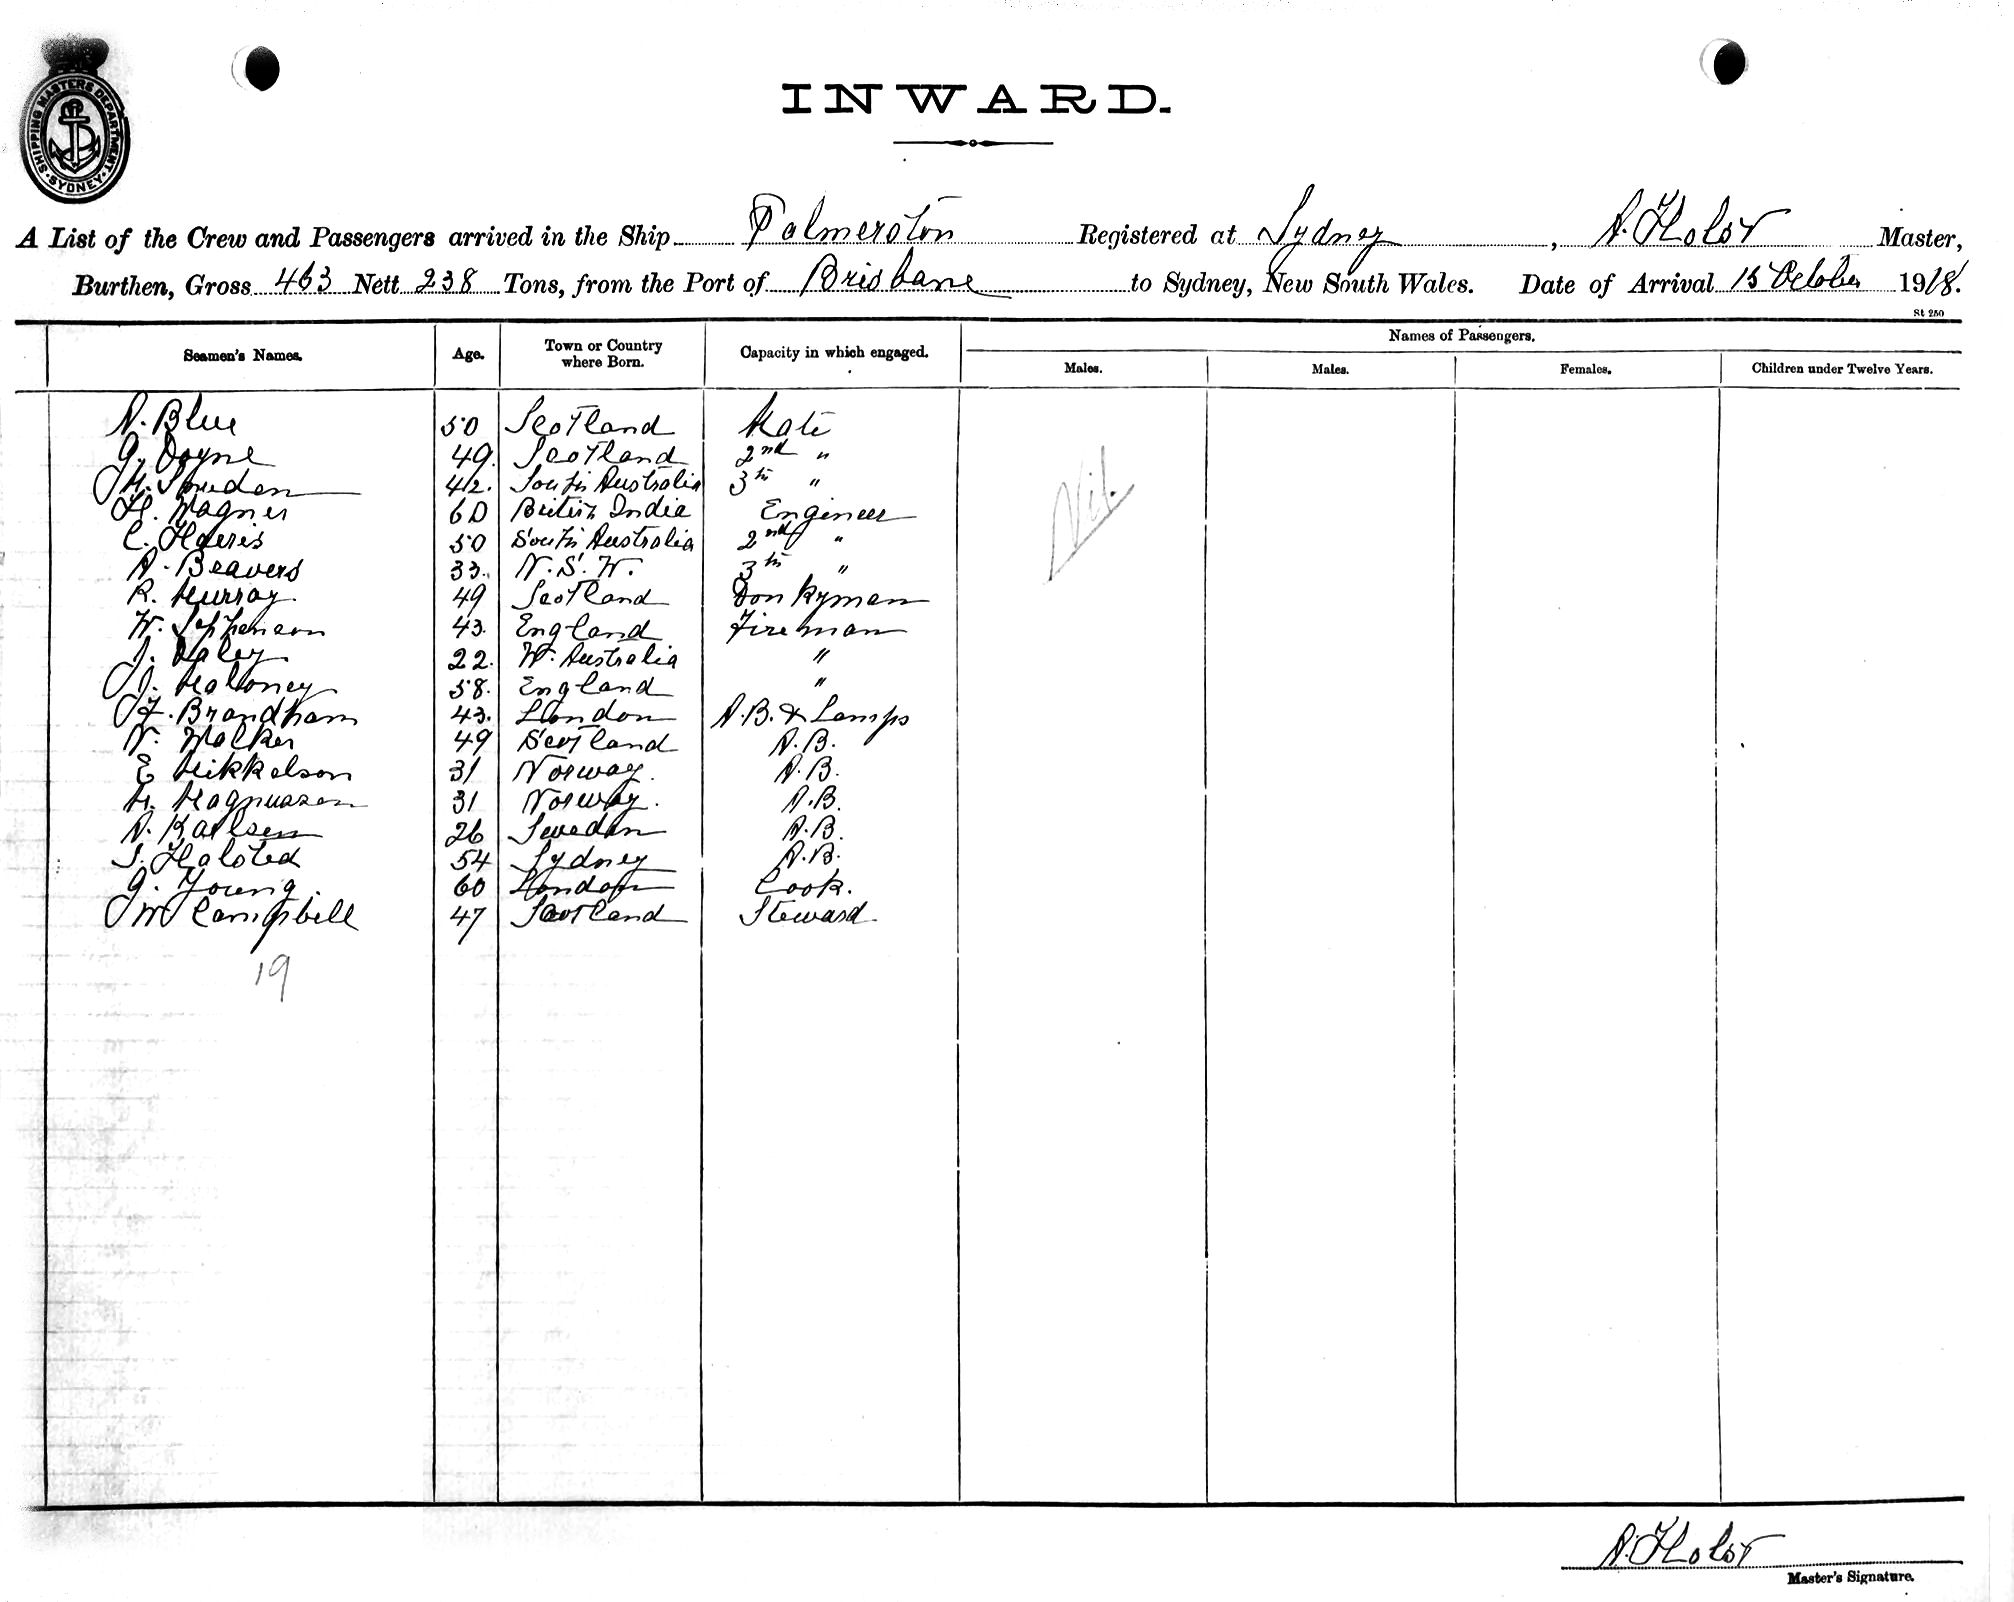 SHIPPING MASTERS DEPARTMENT
SYDNEY
INWARD.
A List of the Crew and Passengers arrived in the Ship Palmerston Registered at Sydney, A. Holst Master,
Burthen, Gross 463 Nett 238 Tons, from the Port of Brisbane to Sydney, New South Wales. Date of Arrival 15 October 1918.
St 250
Seamen's Names. Age. Town or Country where Born. Capacity in which engaged. Names of Passengers.
Males. Males. Females. Children under Twelve Years.
A. Blue 50 Scotland Mate
G. Doyne 49. Scotland 2nd "
H. 42. South Australia 3th "
H. Wagner 60 British India Engineer
C. Harris 50 South Australia 2nd "
A. Beavers 33. N.S.W. 3th "
R. Murray. 49 Scotland Donkyman
W. Sephenson 43. England Fireman
J. Daley 22. W. Australia "
J. Maloney 58. England "
F. Brandham 43. London A.B. & Lamps
N. Walker 49 Scotland A.B.
E Mikkelson 31 Norway. A.B.
M. Magnussen 31 Norway. A.B.
A. Karlsen 26 Sweden A.B.
S. Halsted 54 Sydney A.B.
G. Young. 60 London Cook.
W Campbell 47 Scotland Steward
Nil.
19
A. Holst
Master's Signature.